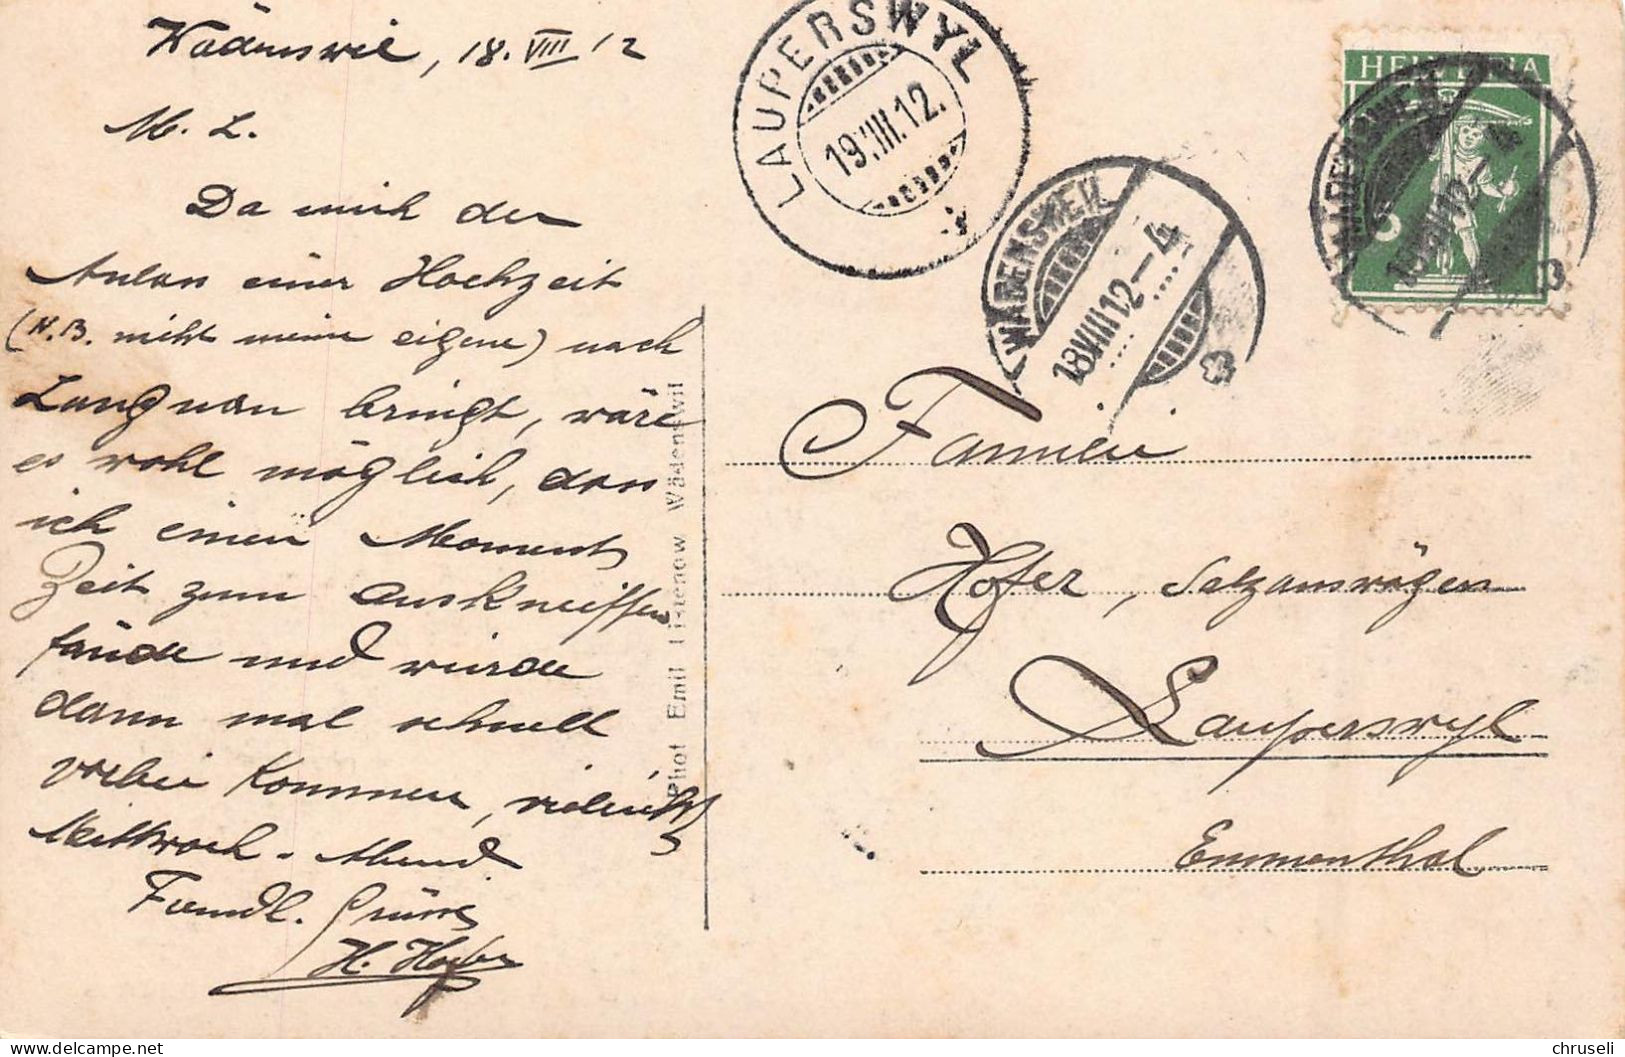 Wädenswil, 18. VIII 12
M. L.
Da mich der
Anlass einer Hochzeit
(N.B. nicht meine eigene) nach
Langnau bringt, wäre
es wohl möglich, dass
ich einen Moment
Zeit zum auskneiffen
fände und würde
dann mal schnell
vorbei kommen, vielleicht
Mittwoch-Abend.
Freundl. Grüsse
H.
Phot Emil Listenow Wädenswil
LAUPERSWYL
19.VIII.12.
WÄDENSWEIL
18VIII12-4
HELVETIA
5
WÄDENSWEIL
18VIII12-4
Familie
Hofer, Salzauswägers
Lauperswyl
Emmenthal
chruseli